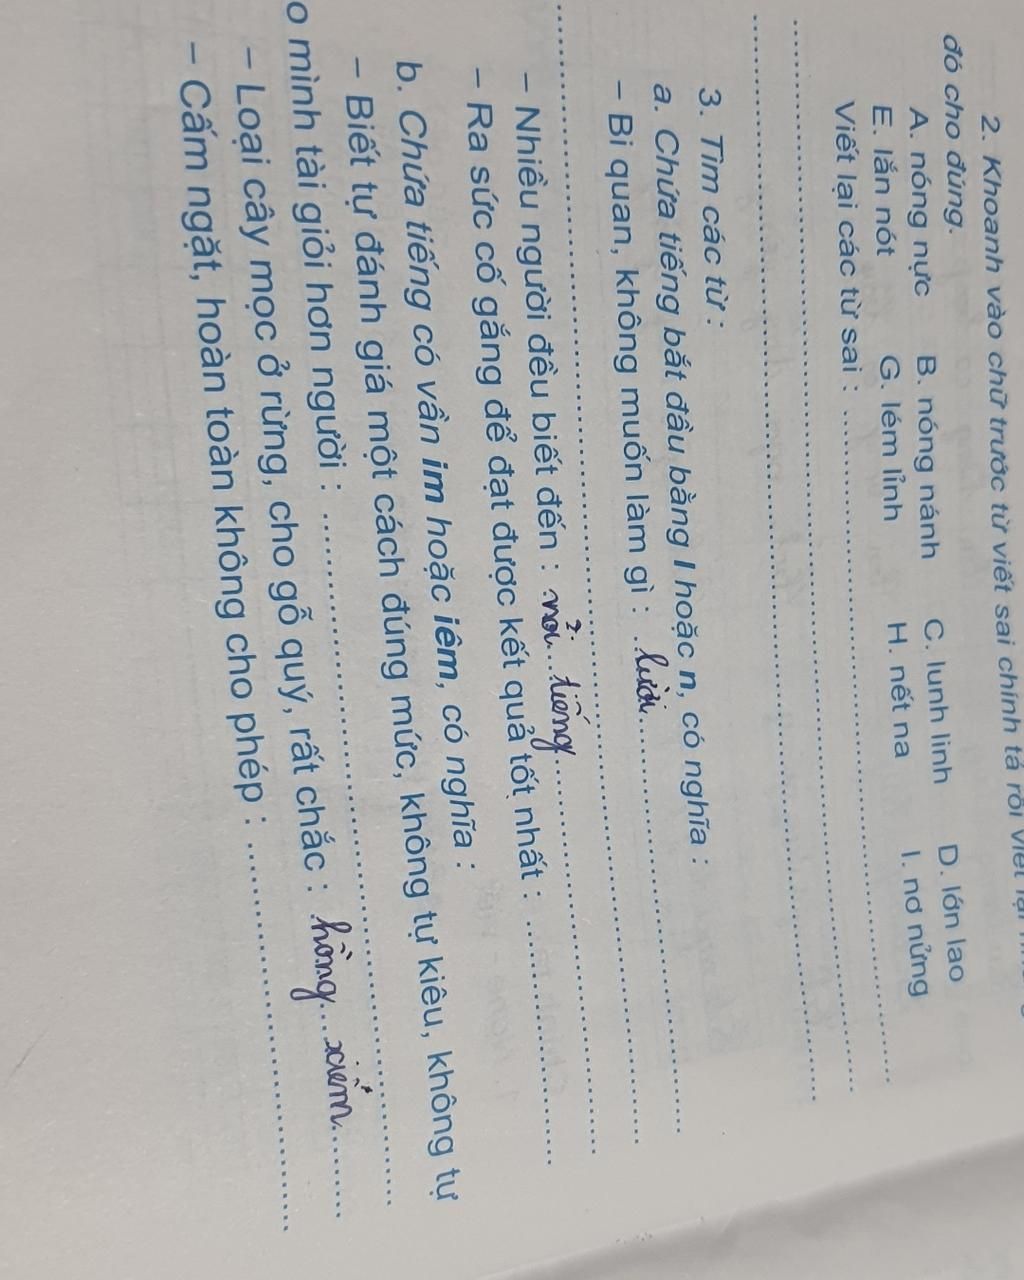 2. Khoanh vào chữ trước từ viết sai chính tả rồi viết lại
đó cho đúng.
A. nóng nực B. nóng nánh C. lunh linh D. lớn lao
E. lắn nót G. lém lỉnh H. nết na I. nơ nửng
Viết lại các từ sai :
3. Tìm các từ :
a. Chứa tiếng bắt đầu bằng l hoặc n, có nghĩa :
– Bi quan, không muốn làm gì : lười
– Nhiều người đều biết đến : nổi tiếng
– Ra sức cố gắng để đạt được kết quả tốt nhất :
b. Chứa tiếng có vần im hoặc iêm, có nghĩa :
– Biết tự đánh giá một cách đúng mức, không tự kiêu, không tự
o mình tài giỏi hơn người :
– Loại cây mọc ở rừng, cho gỗ quý, rất chắc : hồng xiêm
– Cấm ngặt, hoàn toàn không cho phép :